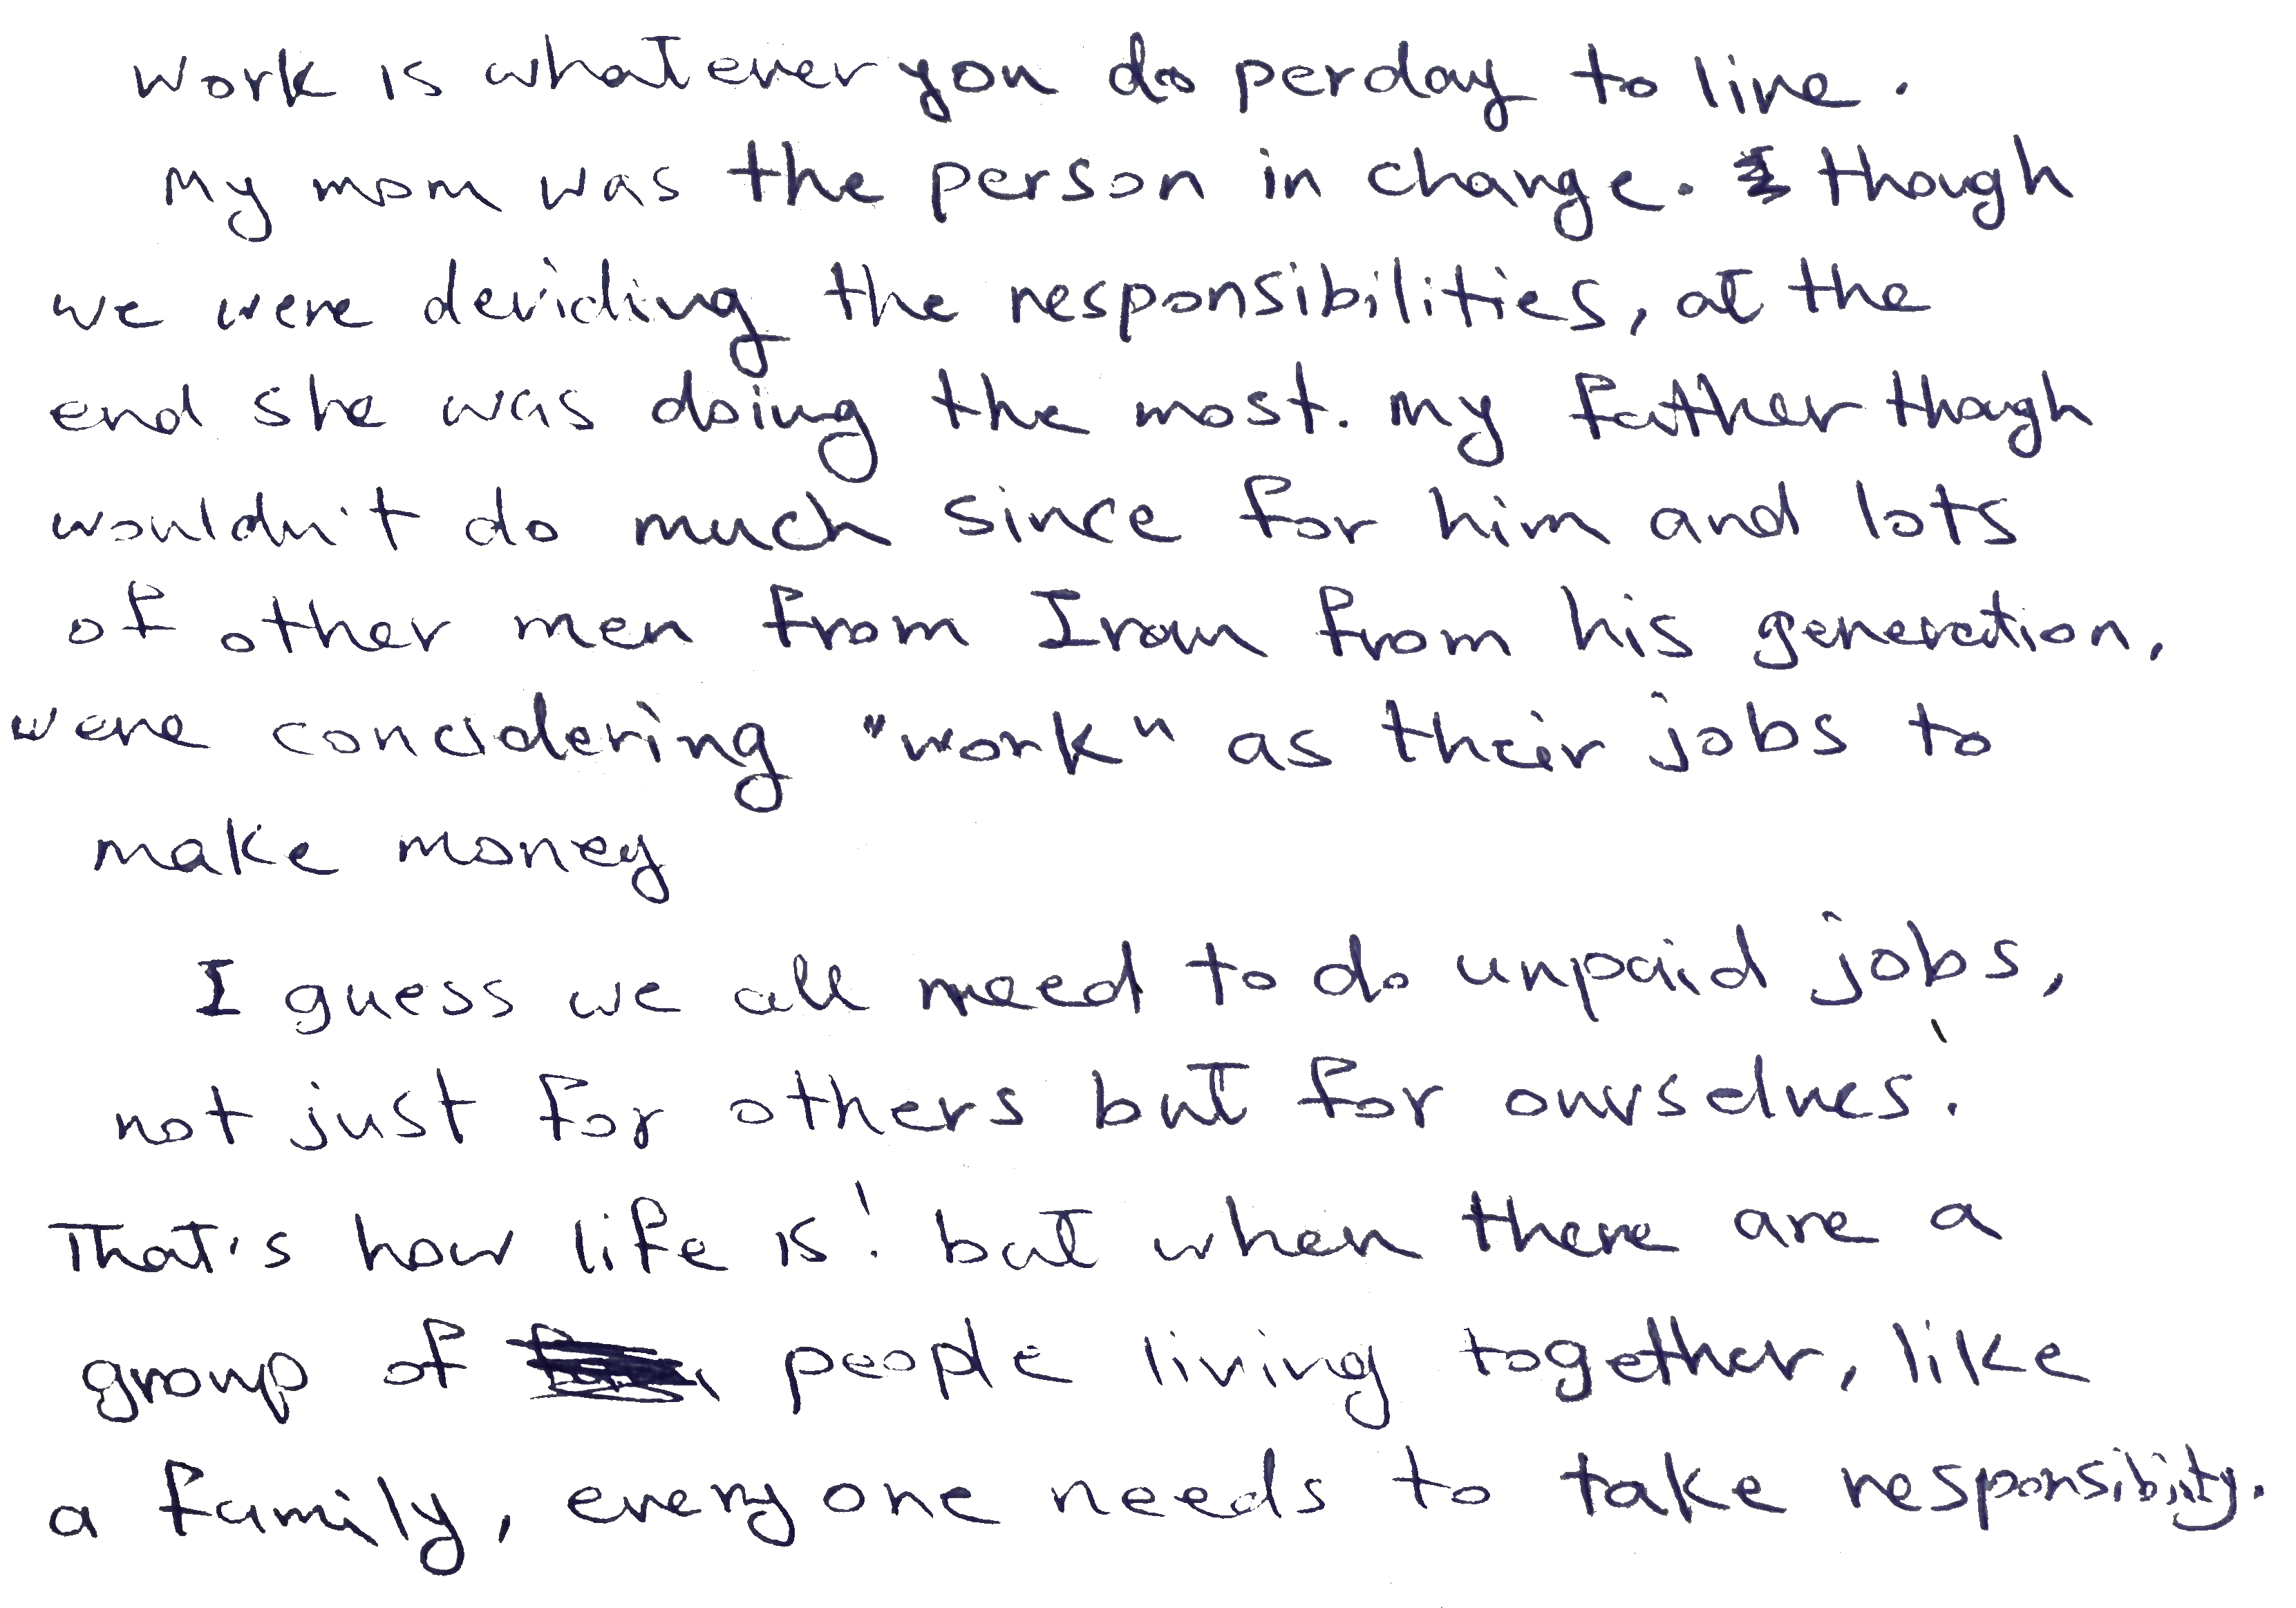 Work is whatever you do perday to live.
My mom was the person in charge. though
we were deviding the responsibilities, at the
end she was doing the most. My father though
wouldn't do much since for him and lots
of other men from Iran from his generation,
were concidering "work" as their jobs to
make money
I guess we all need to do unpaid jobs,
not just for others but for ourselves!
That's how life is! but when there are a
group of people living together, like
a family, every one needs to take responsibility.